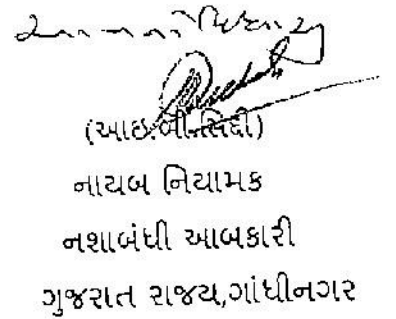 (આઇ.બી.સિદ્દી)
નાયબ નિયામક
નશાબંધી આબકારી
ગુજરાત રાજ્ય,ગાંધીનગર